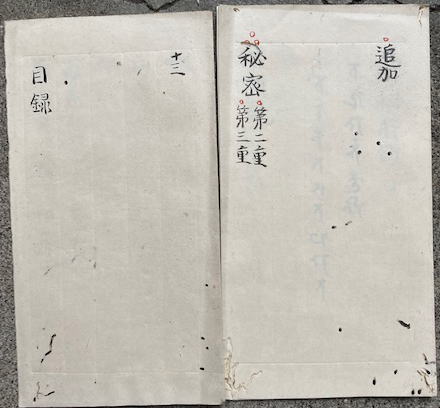 追加
秘密
第二重
第三重
十三
目録